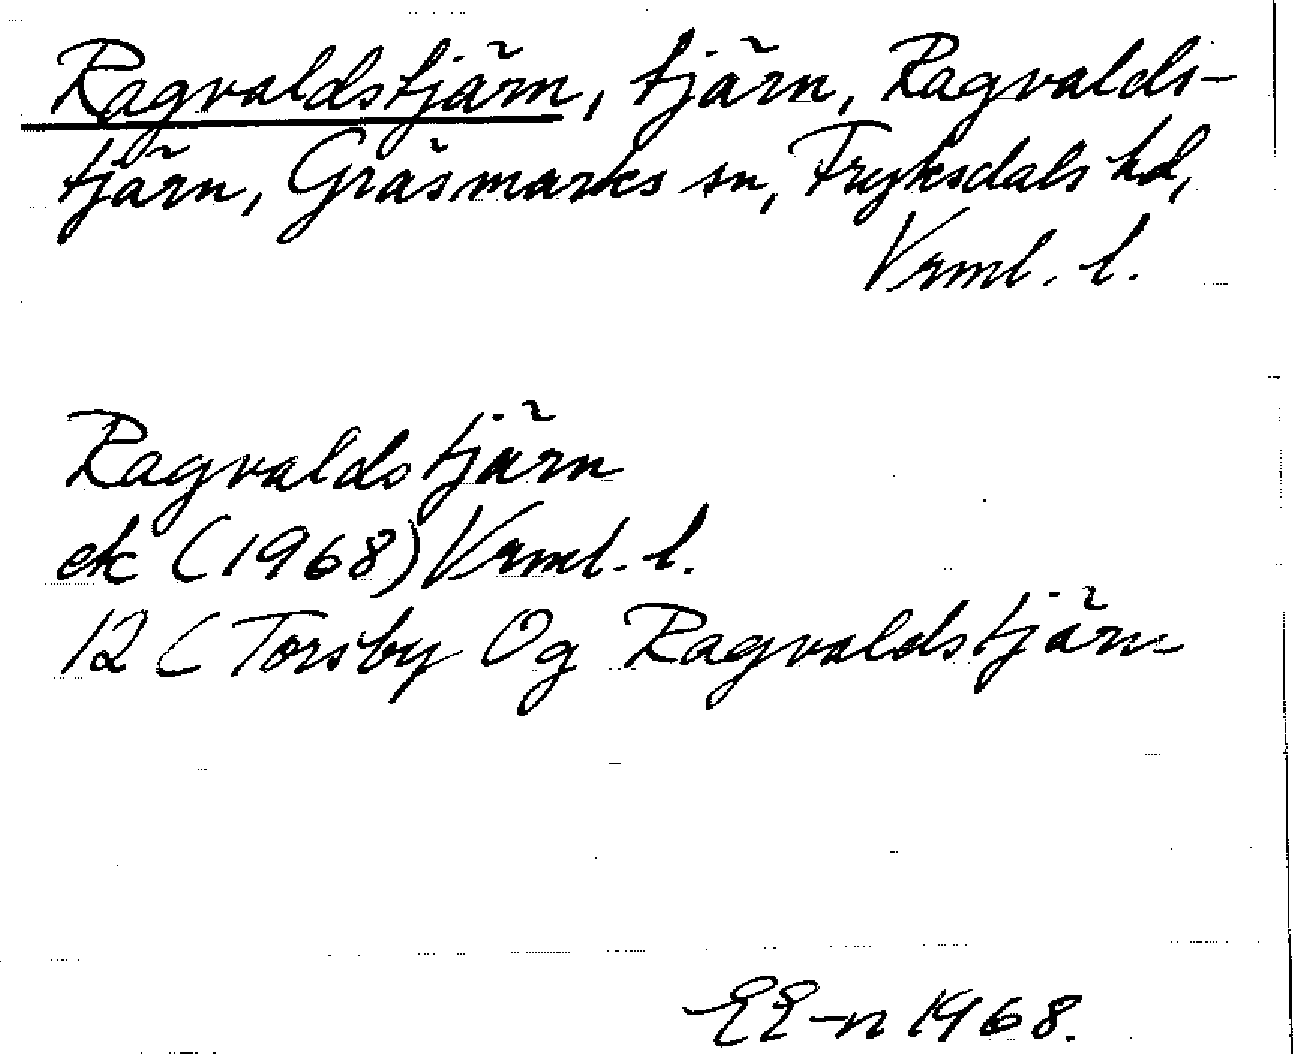 Ragvaldstjärn, tjärn, Ragvalds-
tjärn, Gräsmarks sn, Fryksdals hd,
Vrml. l.
Ragvaldstjärn
ek (1968) Vrml. l.
12 C Torsby Og Ragvaldstjärn
EE-n 1968.